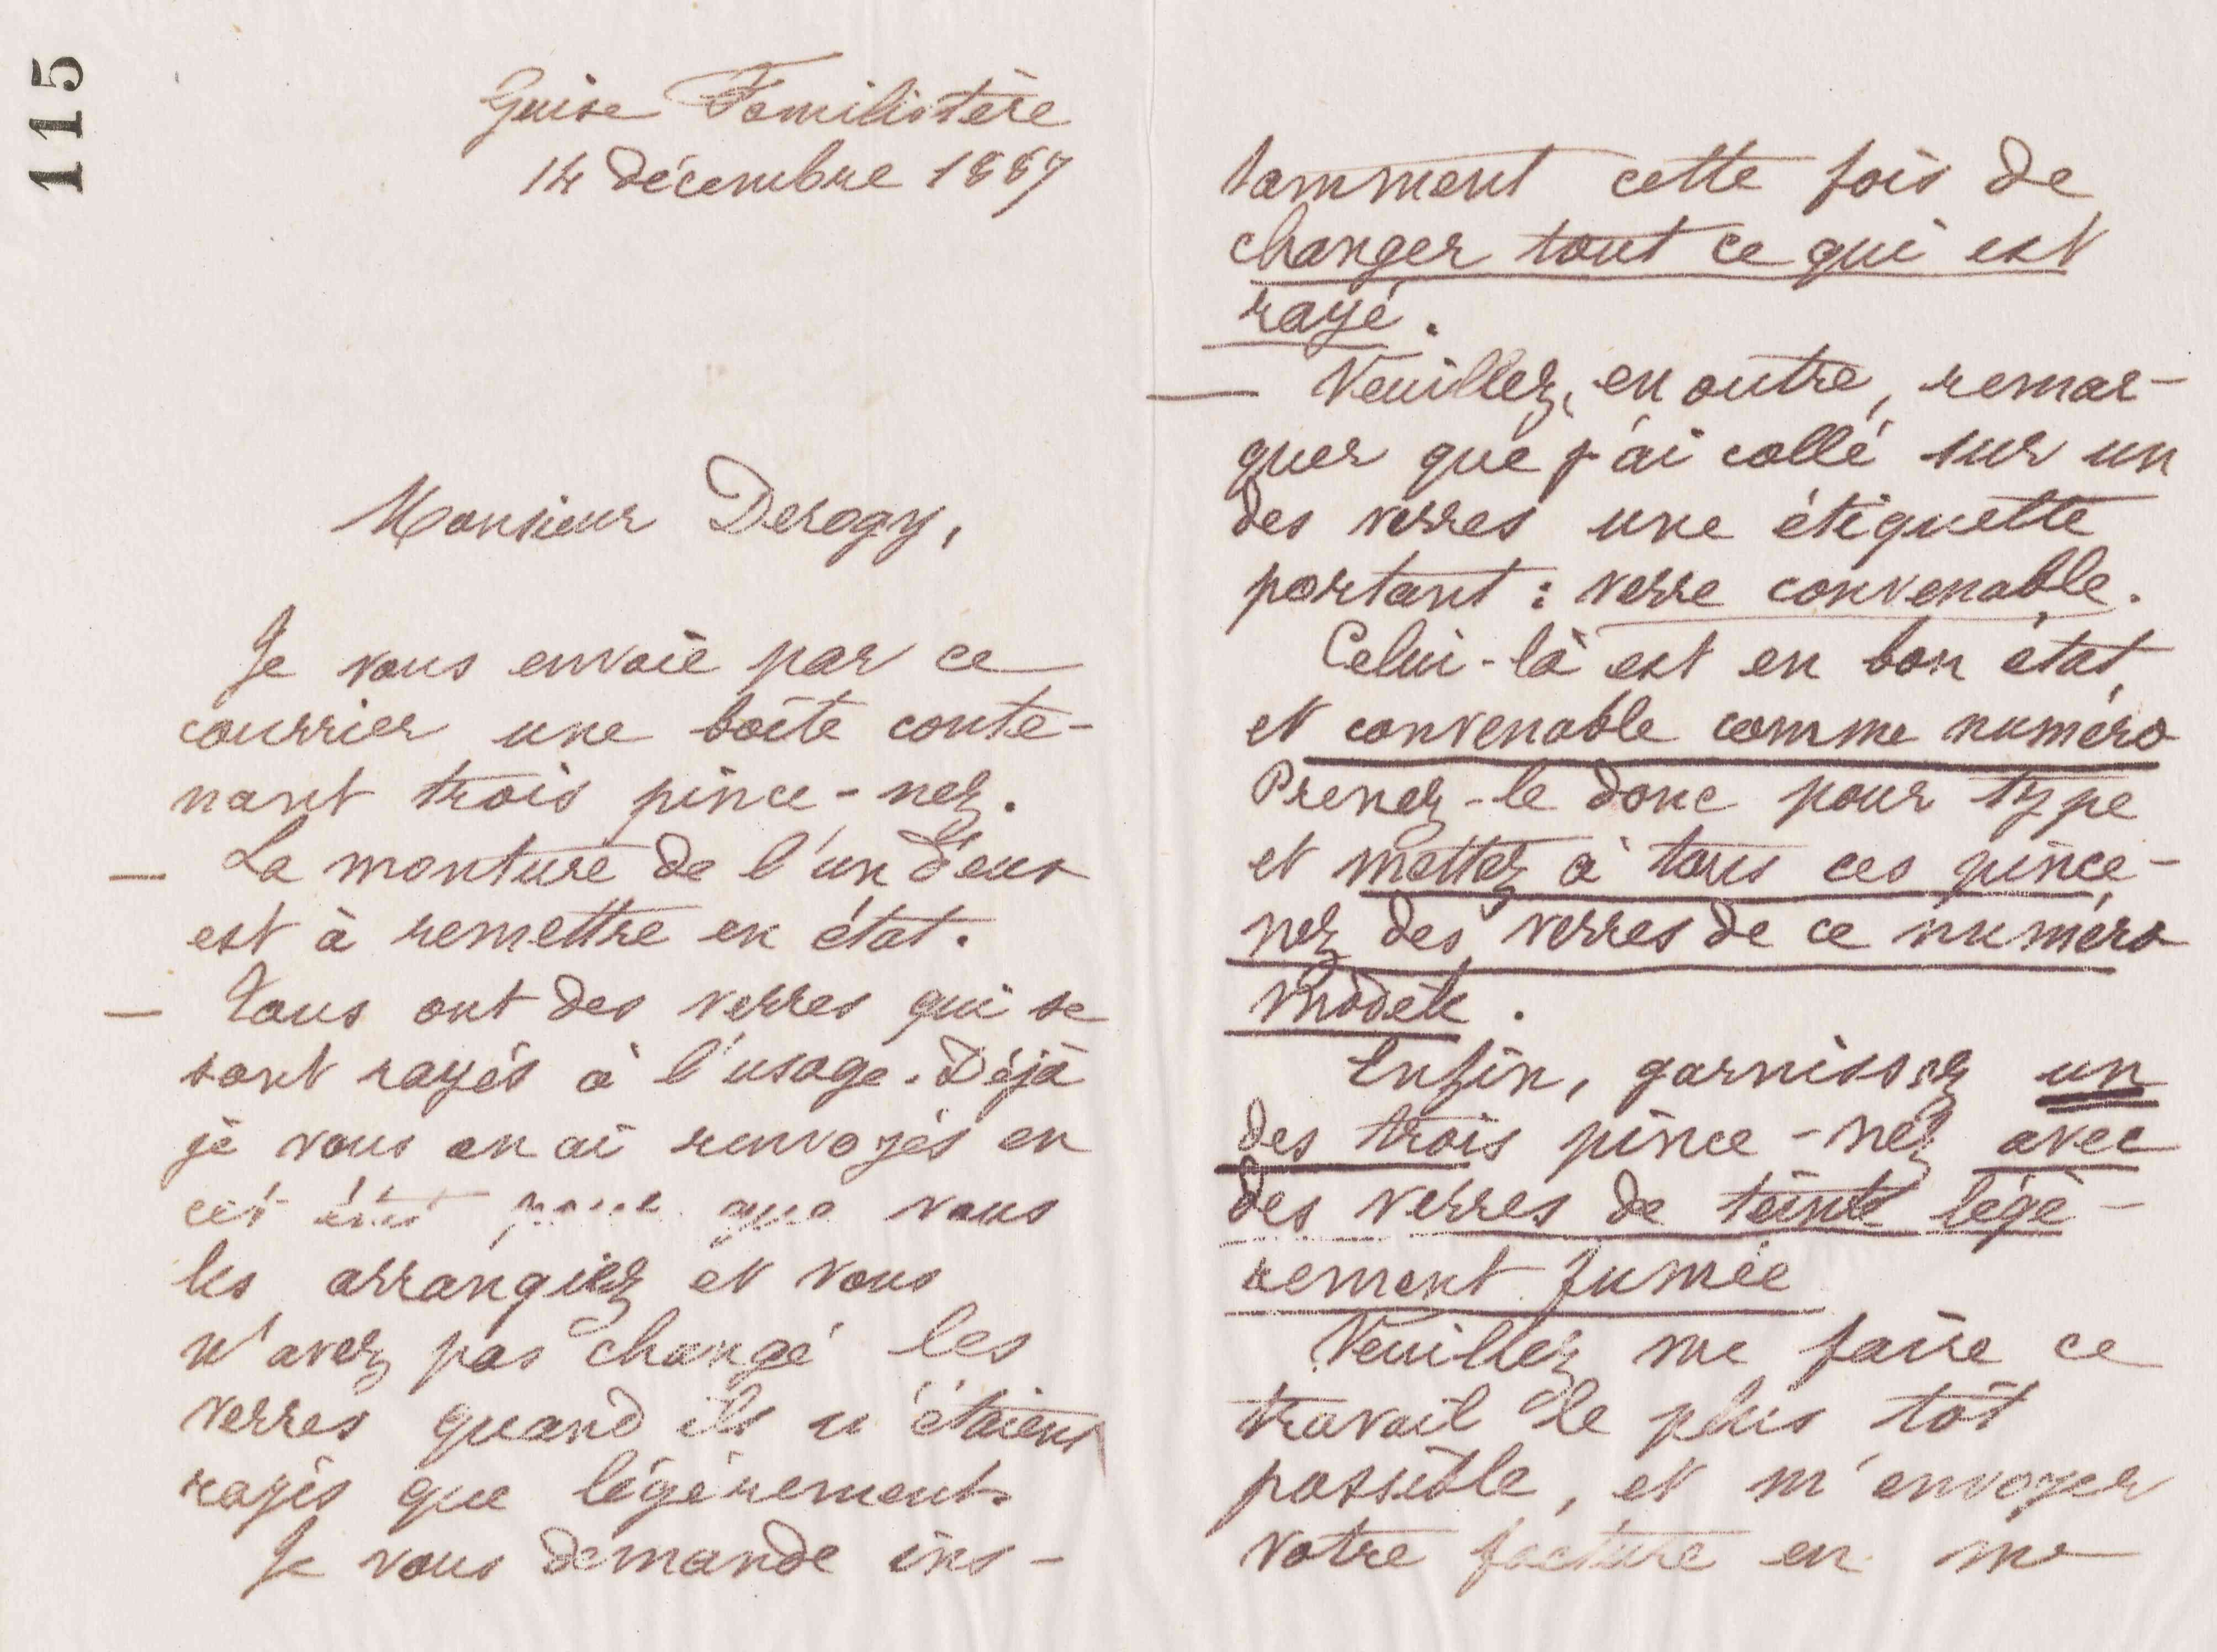 115
Guise Familistère
14 décembre 1887
Monsieur Derogy,
Je vous envoie par ce
courrier une boîte conte-
nant trois pince-nez.
— La monture de l'un d'eux
est à remettre en état.
— Tous ont des verres qui se
sont rayés à l'usage. Déjà
je vous en ai renvoyés en
cet état pour que vous
les arrangiez et vous
n'avez pas changé les
verres quand ils n'étaient
rayés que légèrement.
Je vous demande ins-
tamment cette fois de
changer tout ce qui est
rayé.
— Veuillez, en outre, remar-
quer que j'ai collé sur un
des verres une étiquette
portant : verre convenable.
Celui-là est en bon état,
et convenable comme numéro
Prenez-le donc pour type
et mettez à tous ces pince-
nez des verres de ce numéro
modèle.
Enfin, garnissez un
des trois pince-nez avec
des verres de teinte légè-
rement fumée
Veuillez me faire ce
travail le plus tôt
possible, et m'envoyer
votre facture en me